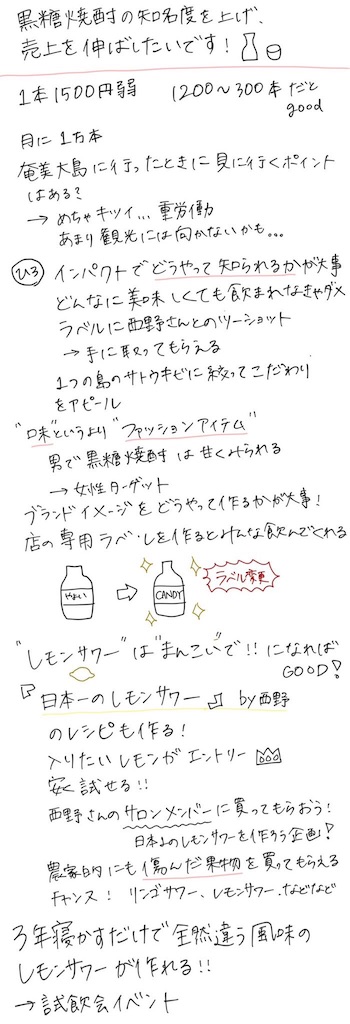 黒糖焼酎の知名度を上げ、
売上を伸ばしたいです!
1本1500円弱 1200〜300本だと
good
月に1万本
奄美大島に行ったときに見に行くポイント
はある?
→ めちゃキツイ… 重労働
あまり観光には向かないかも…
ひろ インパクトでどうやって知られるかが大事
どんなに美味しくても飲まれなきゃダメ
ラベルに西野さんとのツーショット
→手に取ってもらえる
1つの島のサトウキビに絞ってこだわり
をアピール
"味"というより"ファッションアイテム"
男で黒糖焼酎は甘くみられる
→女性ターゲット
ブランドイメージをどうやって作るかが大事!
店の専用ラベルを作るとみんな飲んでくれる
やよい ⇨ CANDY ラベル変更
"レモンサワー"は"まんこい"で!!になれば
GOOD!
『日本一のレモンサワー』by西野
のレシピも作る!
入りたいレモンがエントリー
安く試せる!!
西野さんのサロンメンバーに買ってもらおう!
日本一のレモンサワーを作ろう企画!
農家的にも傷んだ果物を買ってもらえる
チャンス! リンゴサワー、レモンサワー、などなど
3年寝かすだけで全然違う風味の
レモンサワーが作れる!!
→試飲会イベント